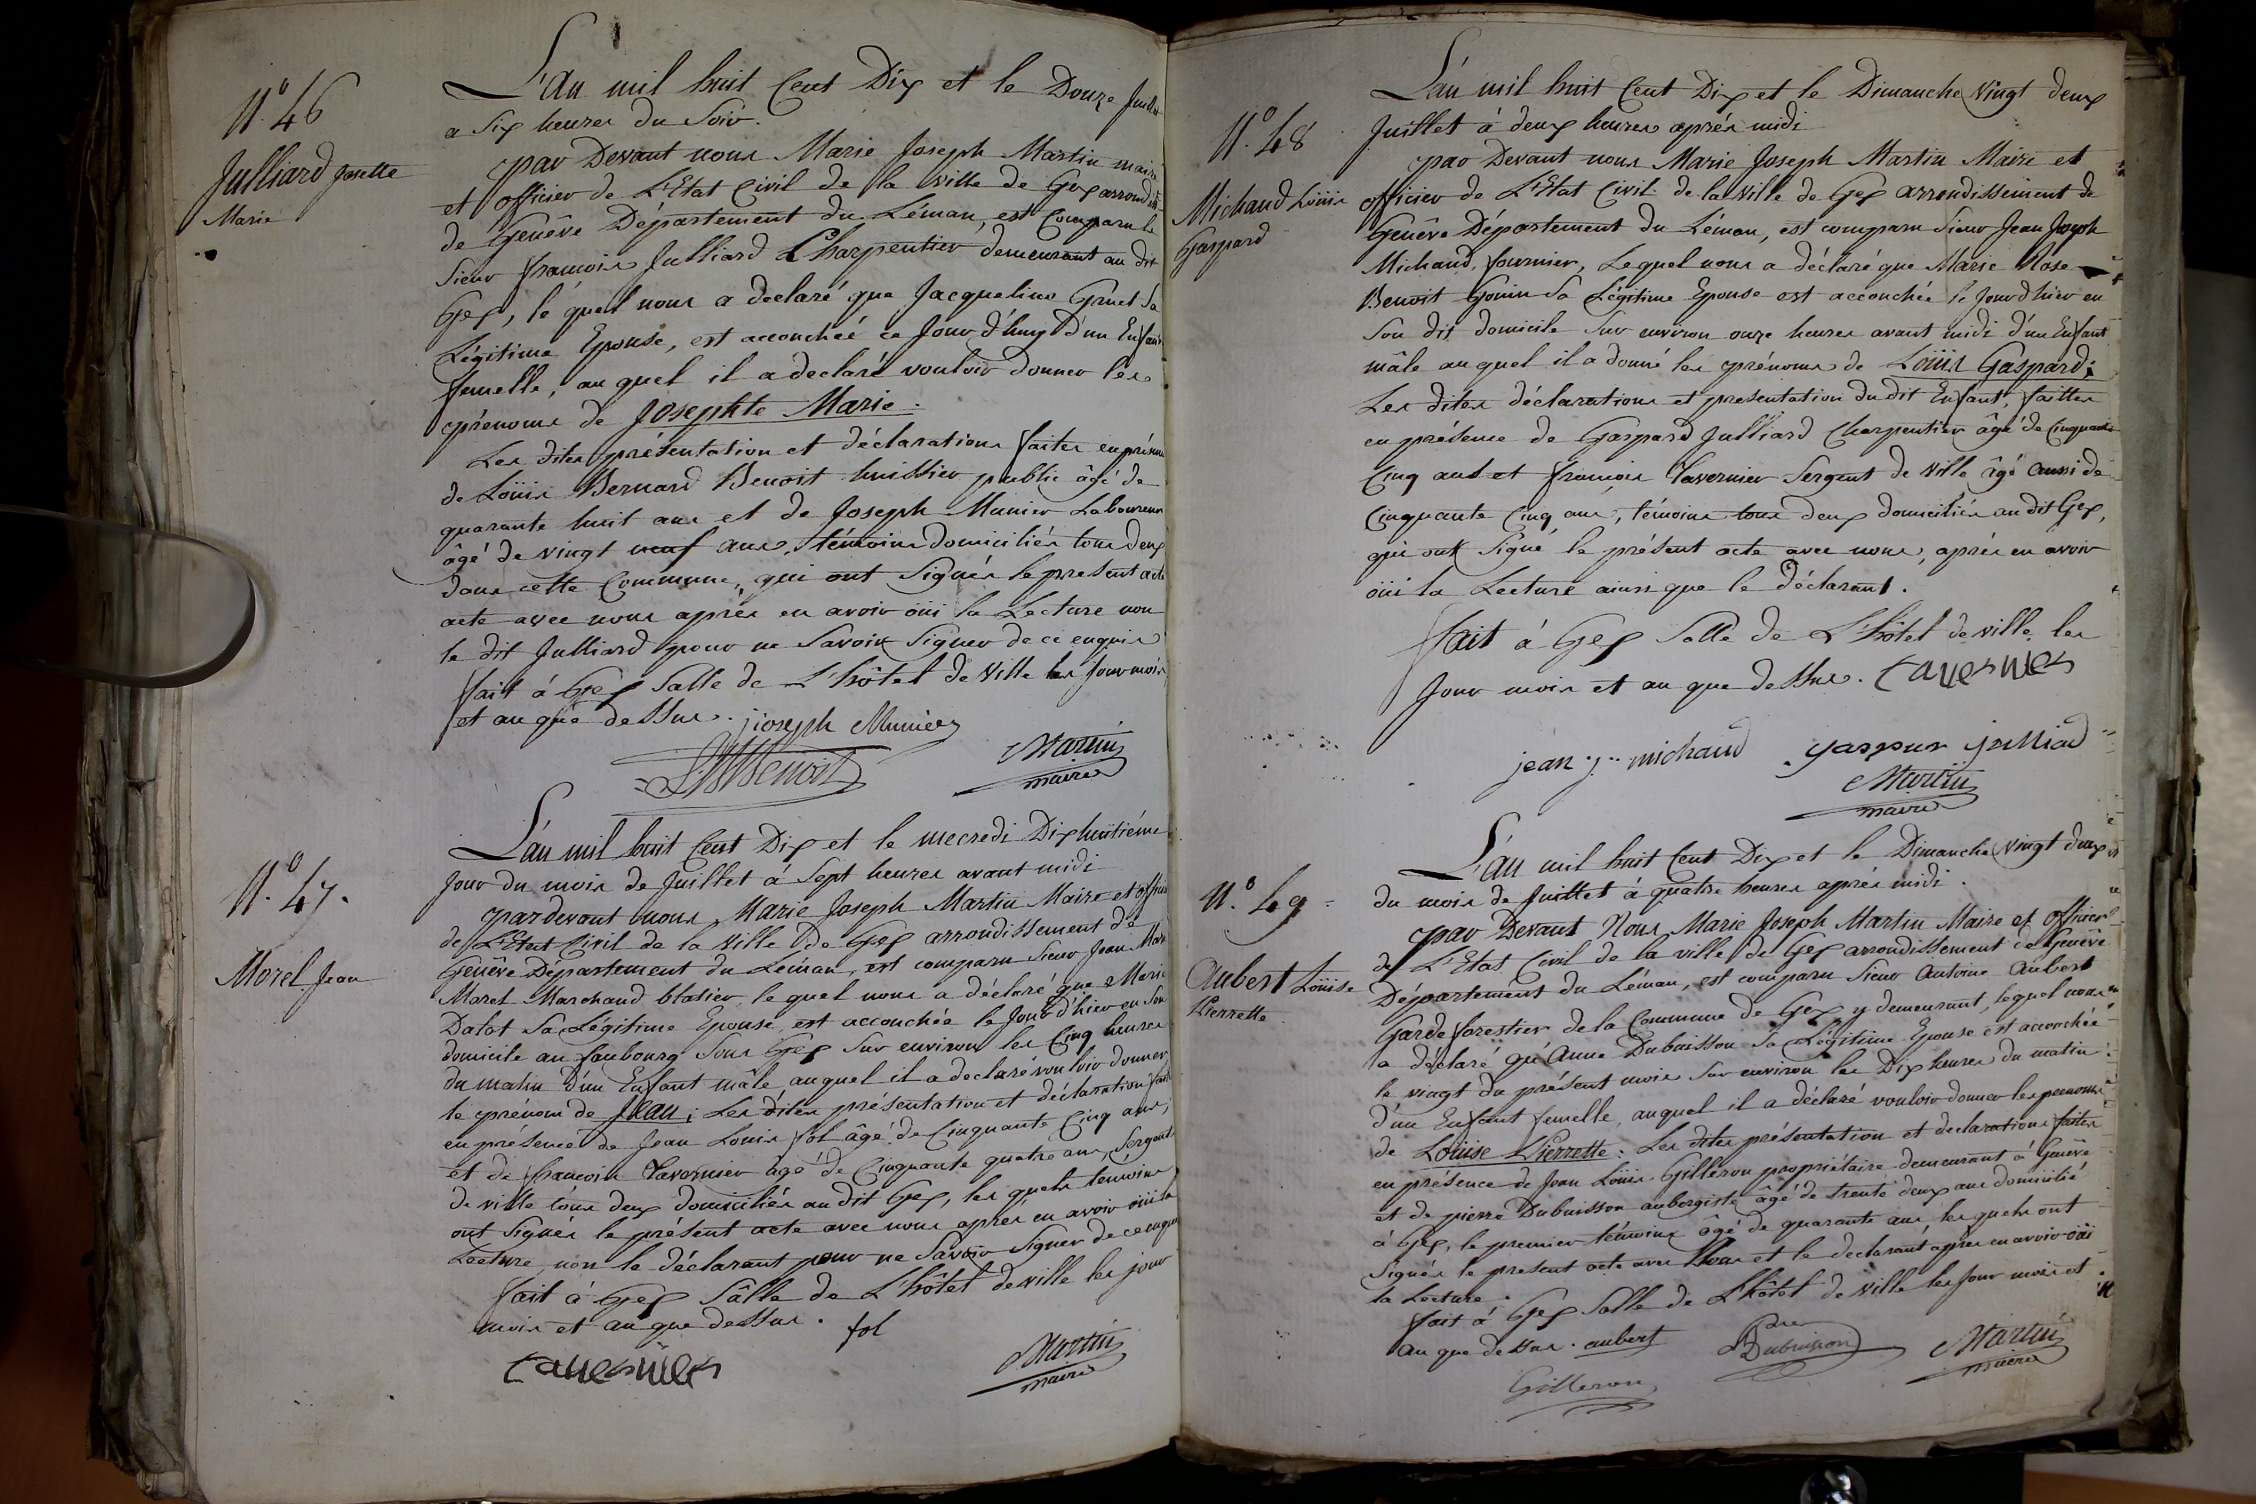 N.o 46
Julliard Josette
Marie
L'An mil huit Cent Dix et le Douze Juillet
a Six heures du Soir.
par Devant nous Marie Joseph Martin maire
et officier de L'Etat Civil de la Ville de Gex arrondt
de Genêve Département du Léman, est Comparu le
Sieur françois Julliard Charpentier demeurant au dit
Gex, le quel nous a declaré que Jacqueline Gruet Sa
Légitime Epouse, est accouchée ce Jour d'huy d'un Enfant
femelle, au quel il a declaré vouloir donner les
prénoms de Josephte Marie.
Les dites présentation et déclarations faites en présence
de Loüis Bernard Benoit huissier public âgé de
quarante huit ans et de Joseph Munier Laboureur
âgé de vingt neuf ans, témoins domiciliés tous deux
dans cette Commune, qui ont Signés le present acte
acte avec nous après en avoir oüi la Lecture non
le dit Julliard pour ne Savoir Signer de ce enquis
fait à Gex Salle de L'hôtel de Ville les Jour mois
et an que dessus. joseph Munier
LBBenoit Martin
maire
N.o 47.
Morel Jean
L'an mil huit Cent Dix et le mecredi Dix huitiéme
Jour du mois de Juillet à Sept heures avant midi
par devant nous Marie Joseph Martin Maire et officier
de L'Etat Civil de la Ville de Gex arrondissement de
Genêve Département du Léman, est comparu Sieur Jean Marie
Morel Marchand blatier, le quel nous a déclaré que Marie
Dalot Sa Légitime Epouse, est accouchée le Jour d'hier en Son
domicile au faubourg Sous Gex Sur environ les Cinq heures
du matin d'un Enfant mâle, auquel il a declaré vouloir donner
le prénom de Jean; Les dites présentation et déclaration faites
en présence de Jean Louis fol âgé de Cinquante Cinq ans,
et de françois Tavernier âgé de Cinquante quatre ans, Sergent
de ville tous deux domiciliés au dit Gex, les quels témoins
ont Signés le présent acte avec nous après en avoir oüi la
Lecture, non le déclarant pour ne Savoir Signer de ce enquis
fait à Gex Sâlle de L'hôtel de ville les jour
mois et an que dessus. fol
tavernier Martin
maire
N.o 48
Michaud Loüis
Gaspard
L'an mil huit Cent Dix et le Dimanche Vingt deux
Juillet à deux heures aprés midi
par Devant nous Marie Joseph Martin Maire et
officier de L'Etat Civil de la Ville de Gex arrondissement de
Genêve Département du Léman, est comparu Sieur Jean Joseph
Michaud, fournier, Lequel nous a déclaré que Marie Rose
Benoit Gonin Sa Légitime Epouse est accouchée le Jour d'hier en
Son dit domicile Sur environ onze heures avant midi d'un Enfant
mâle au quel il a donné les prénoms de Loüis Gaspard;
Les dites déclarations et presentation du dit Enfant, faittes
en présence de Gaspard Julliard Charpentier âgé de Cinquante
Cinq ans et françois Tavernier Sergent de Ville âgé aussi de
Cinquante Cinq ans, témoins tous deux domiciliés au dit Gex,
qui ont Signé le présent acte avec nous, aprés en avoir
oüi la Lecture ainsi que le déclarant.
fait à Gex Salle de L'hôtel de ville, les
Jour mois et an que dessus. tavernier
jean j. michaud gaspar julliad
Martin
maire
N.o 49
Aubert Loüise
Pierrette
L'An mil huit Cent Dix et le Dimanche vingt deux
du mois de Juillet à quatre heures aprés midi.
par Devant Nous Marie Joseph Martin Maire et officier
de L'Etat Civil de la ville de Gex arrondissement de Genêve
Département du Léman, est comparu Sieur Antoine Aubert
Garde forestier de la Commune de Gex y demeurant, lequel nous
a déclaré qu'Anne Dubuisson Sa Légitime Epouse est accouchée
le vingt du présent mois Sur environ les Dix heures du matin
d'un Enfant femelle, auquel il a déclaré vouloir donner les prenoms
de Loüise Pierrette: Les dites présentation et declarations faites
en présence de Jean Loüis Gilleron propriétaire demeurant à Genêve
et de pierre Dubuisson aubergiste âgé de trente deux ans domicilié
à Gex, le premier témoins âgé de quarante ans, les quels ont
Signés le present acte avec Nous et le declarant aprés en avoir oüi
la Lecture.
fait à Gex Salle de L'hôtel de Ville les Jour mois et
an que dessus. aubert Pre Dubuisson Martin
maire
Gilleron